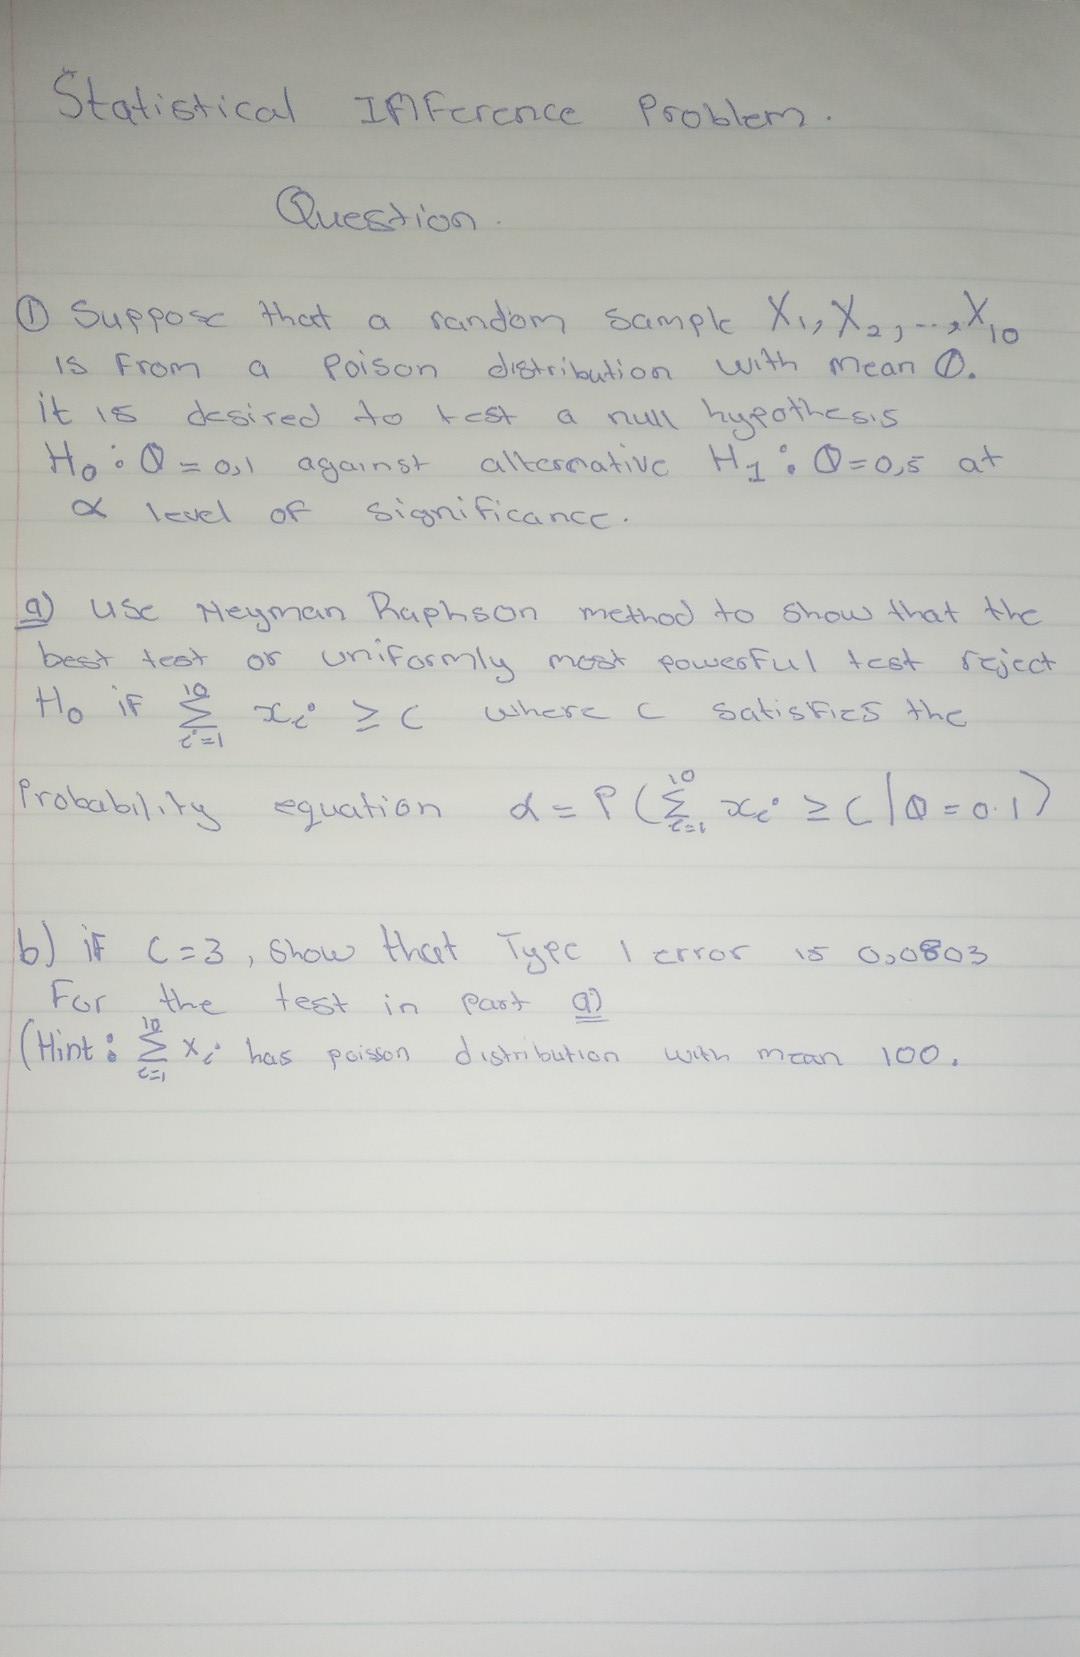 Statistical Inference Problem.
Question.
① Suppose that a random sample X₁, X₂, ..., X₁₀
is from a Poison distribution with mean θ.
it is desired to test a null hypothesis
H₀: θ = 0,1 against alternative H₁: θ=0,5 at
α level of significance.
a) Use Neyman Raphson method to show that the
best test or uniformly most powerful test reject
H₀ if ∑_{i=1}^{10} xᵢ ≥ c where c satisfies the
Probability equation α = P(∑_{i=1}^{10} xᵢ ≥ c | θ = 0.1)
b) if c=3, show that Type 1 error is 0,0803
For the test in part a)
(Hint: ∑_{i=1}^{10} Xᵢ has poisson distribution with mean 100.